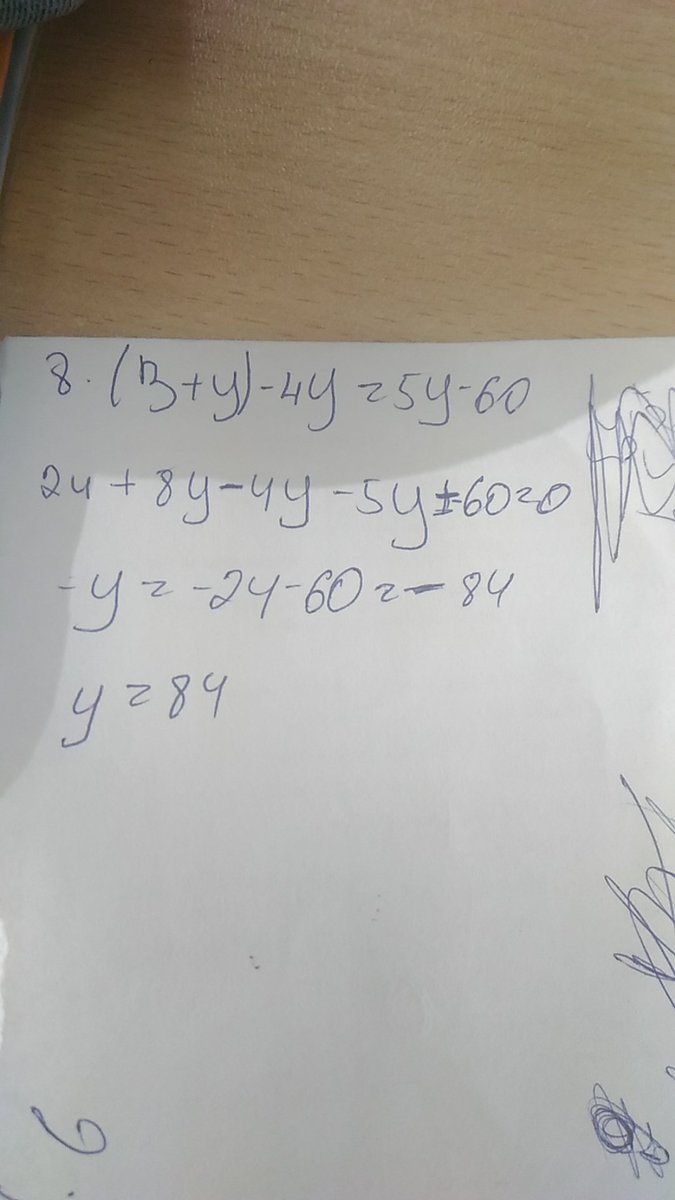 8·(3+y)-4y=5y-60
24+8y-4y-5y+60=0
-y=-24-60=-84
y=84